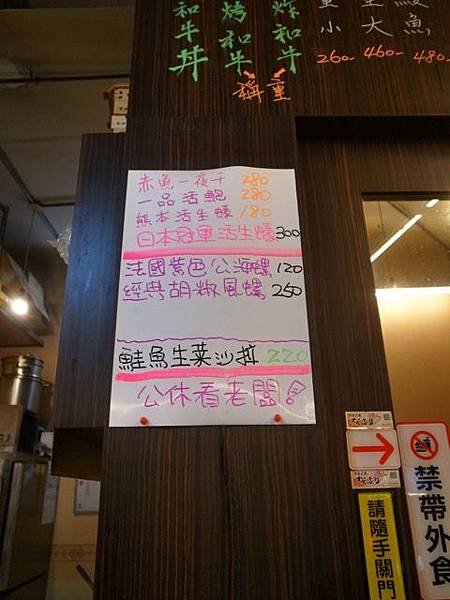 和牛丼
烤和牛
炸和牛
秤重
小 大 魚
260- 460- 480-
赤魚一夜干 280
一品活鮑 280
熊本活生蠔 180
日本冠軍活生蠔 300
法國紫色公海螺 120
經典胡椒風螺 250
鮭魚生菜沙拉 220
公休看老闆
禁帶外食
請隨手關門